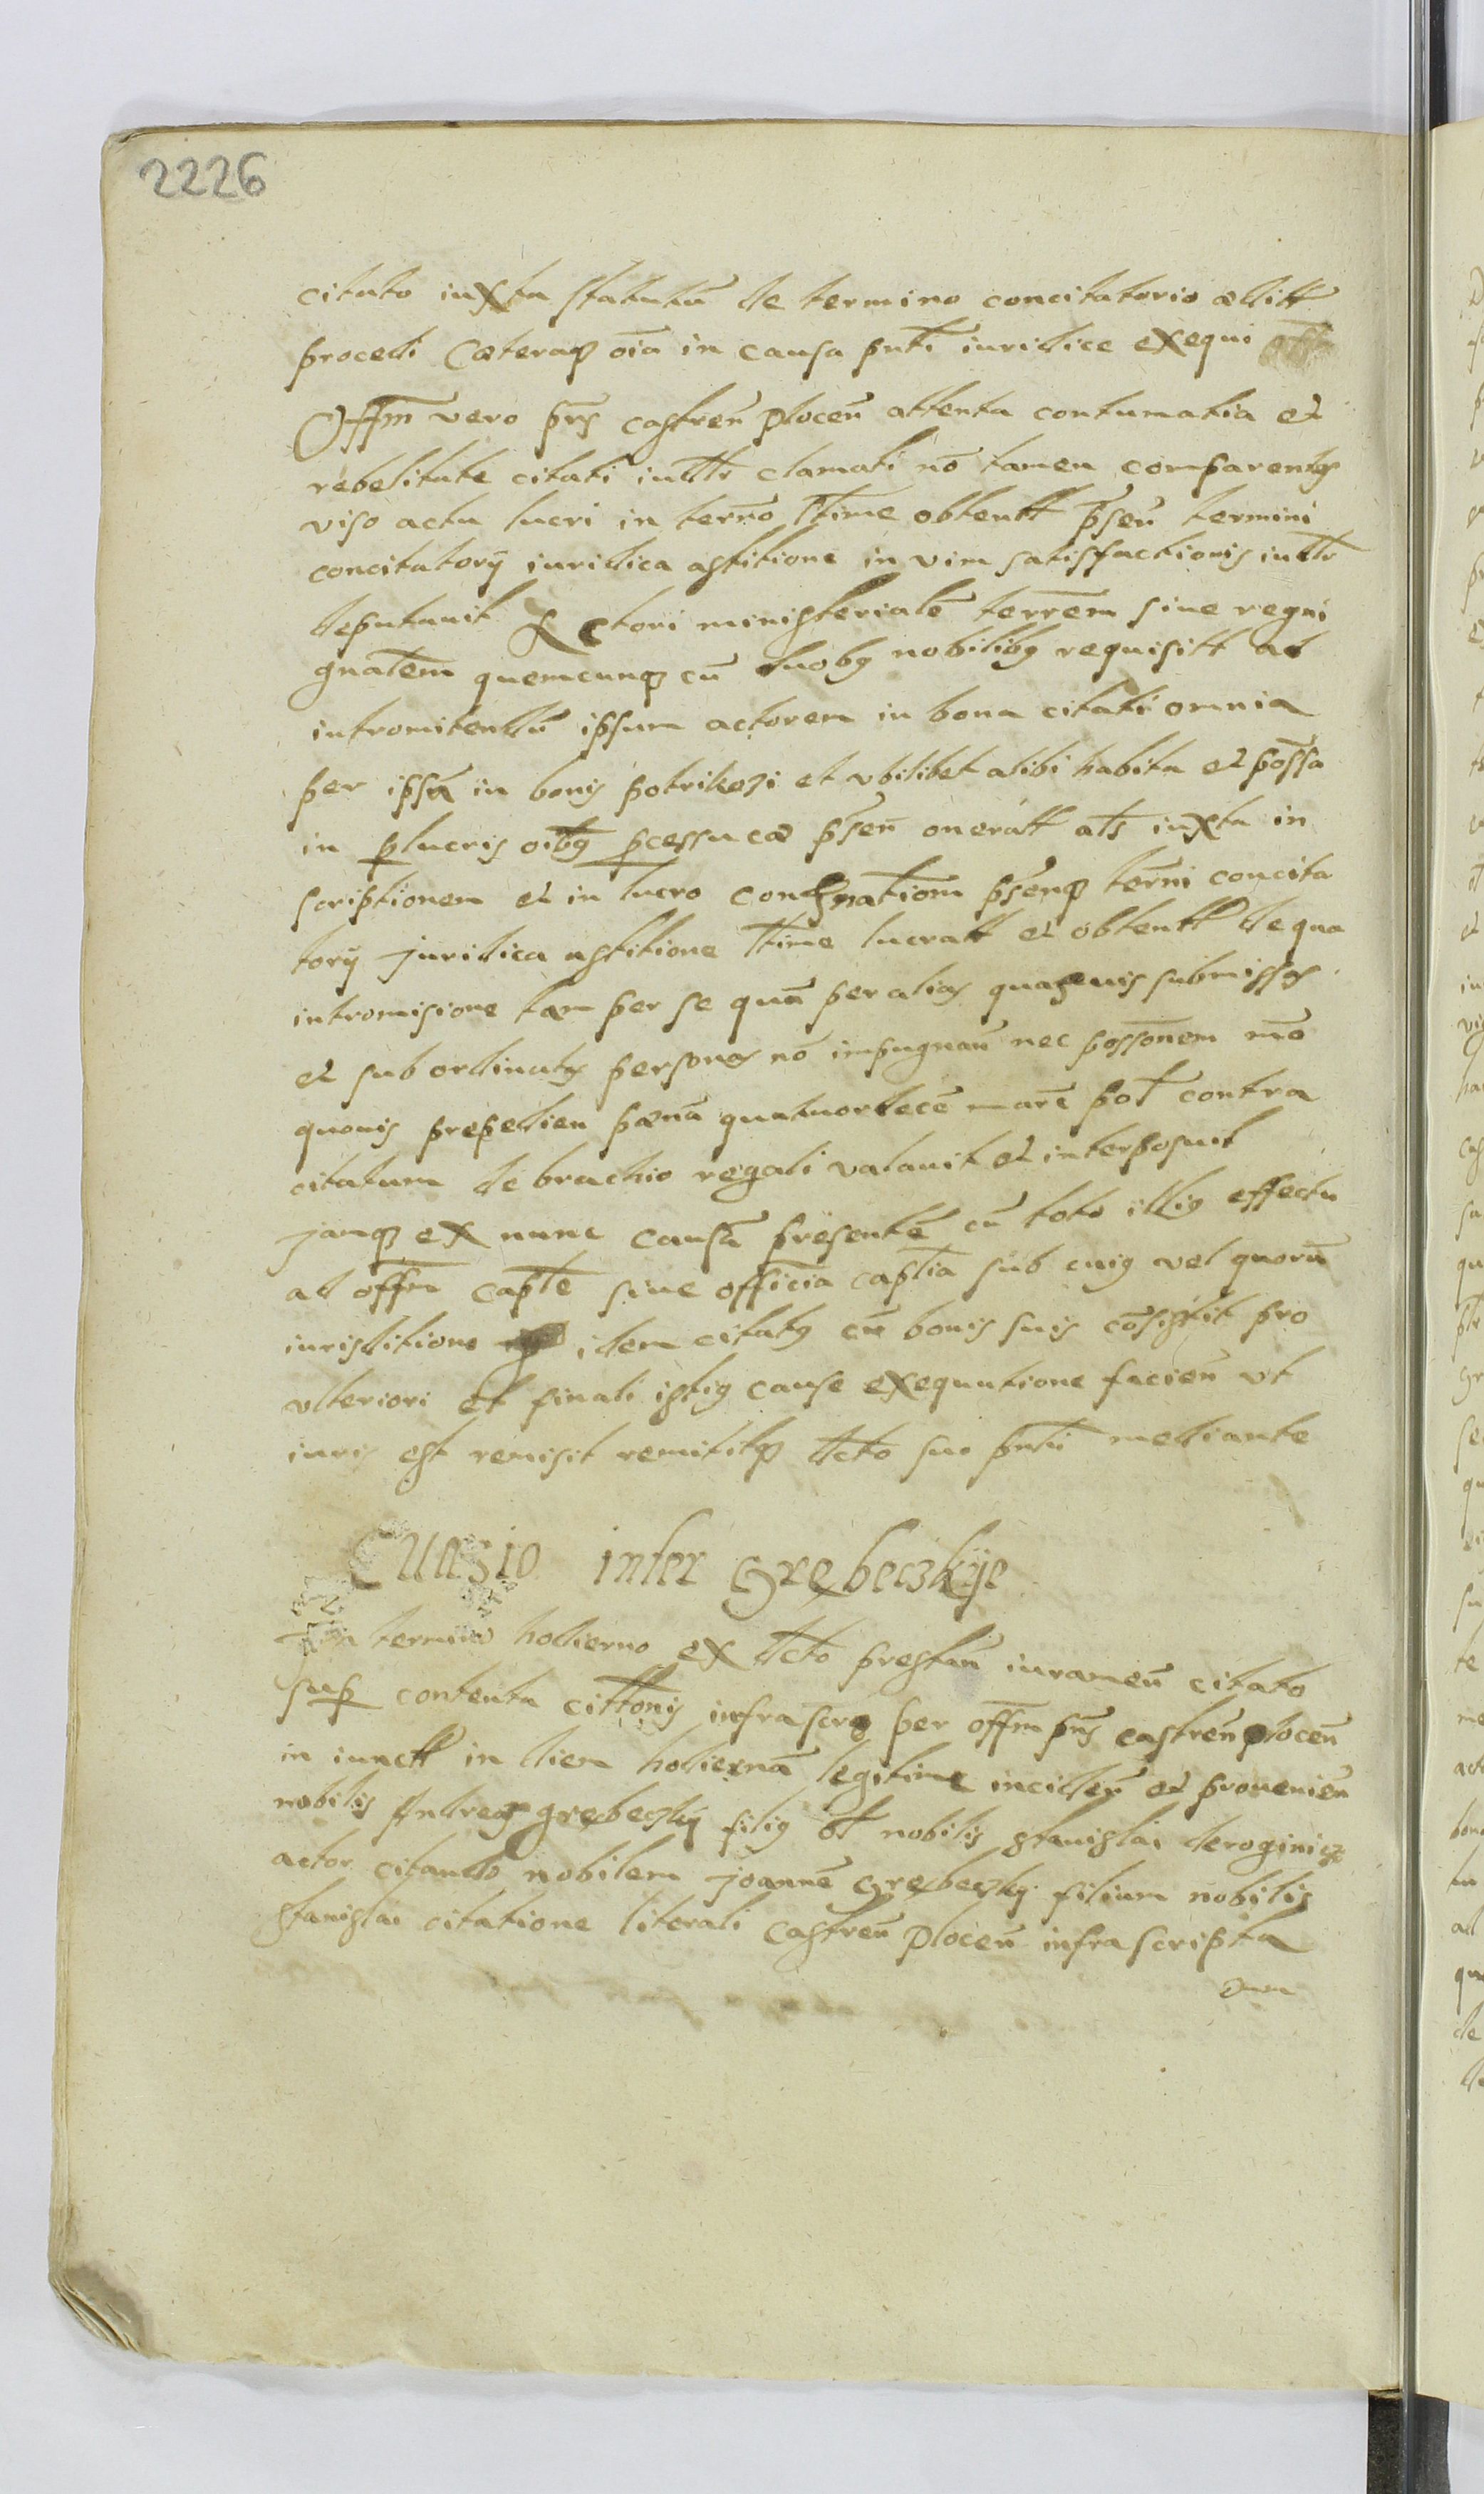 2226
citato iuxta statutū de termino concitatorio ęditt
procedi Cæteraqȝ oīa in causa pnti iuridice exequi
Offm vero pns castren̄ plocen̄ attenta contumatia et
rebelitate citati iudltr clamati nō tamen comparentis
viso actu lucri in termno ltime obtentt psen̄ termini
concitatorÿ iuridica astitione in vim satisfactionis iudltr
deputauit Actori ministerialē terrem siue regni
gnalem quemcunqȝ cū duobꝰ nobilibꝰ requisitt ad
intromitendū ipsum actorem in bona citati omnia
per ipsū in bonis potrikozi et vbilibet alibi habita et possa
in ꝑlucris oibꝰ ꝓcessu ca psen̄ oneratt als iuxta in
scriptionem et in lucro condemnatiom psenqȝ termi concita
torÿ juridica astitione ltime lucratt et obtentt de qua
intromisione tam per se quā per alias quasuis submissas
et subordinatas personas nō impugnan̄ nec possonem mō
quouis prepedien pænā quatuordecē marē pol contra
citatum de brachio regali valauit et interposuit
jamqȝ ex nunc causā presentē cū toto illiꝰ effectu
ad offm captle siue officia captlia sub cuiꝰ vel quorū
iurisditione idem citatꝰ cū bonis suis cōsistit pro
vlteriori et finali istiꝰ cause exequutione facien̄ vt
iuris est remisit remititqȝ dcto suo pnti mediante
Euasio inter Grębeczkÿe
In termino hodierno ex dcto prestan̄ iuramen̄ citato
suꝑ contenta cittonis infrascrae per offm pns castren̄ plocen̄
in iunctt in diem hodiernā legitime inciden̄ et prouenien̄
nobilis Andreas grębeczkÿ filiꝰ ol nobilis stanislai de roginicze
actor citando nobilem joannē Grębeczkÿ filium nobilis
stanislai citatione literali castren̄ plocen̄ infrascripta